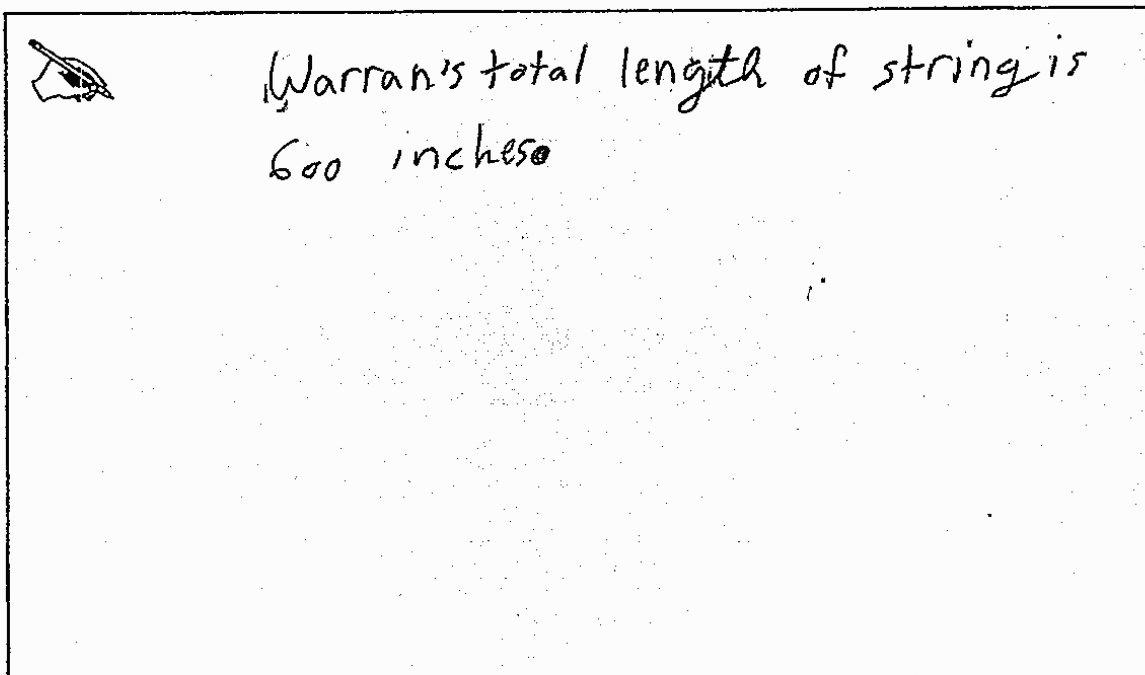 Warran's total length of string is
600 inches.